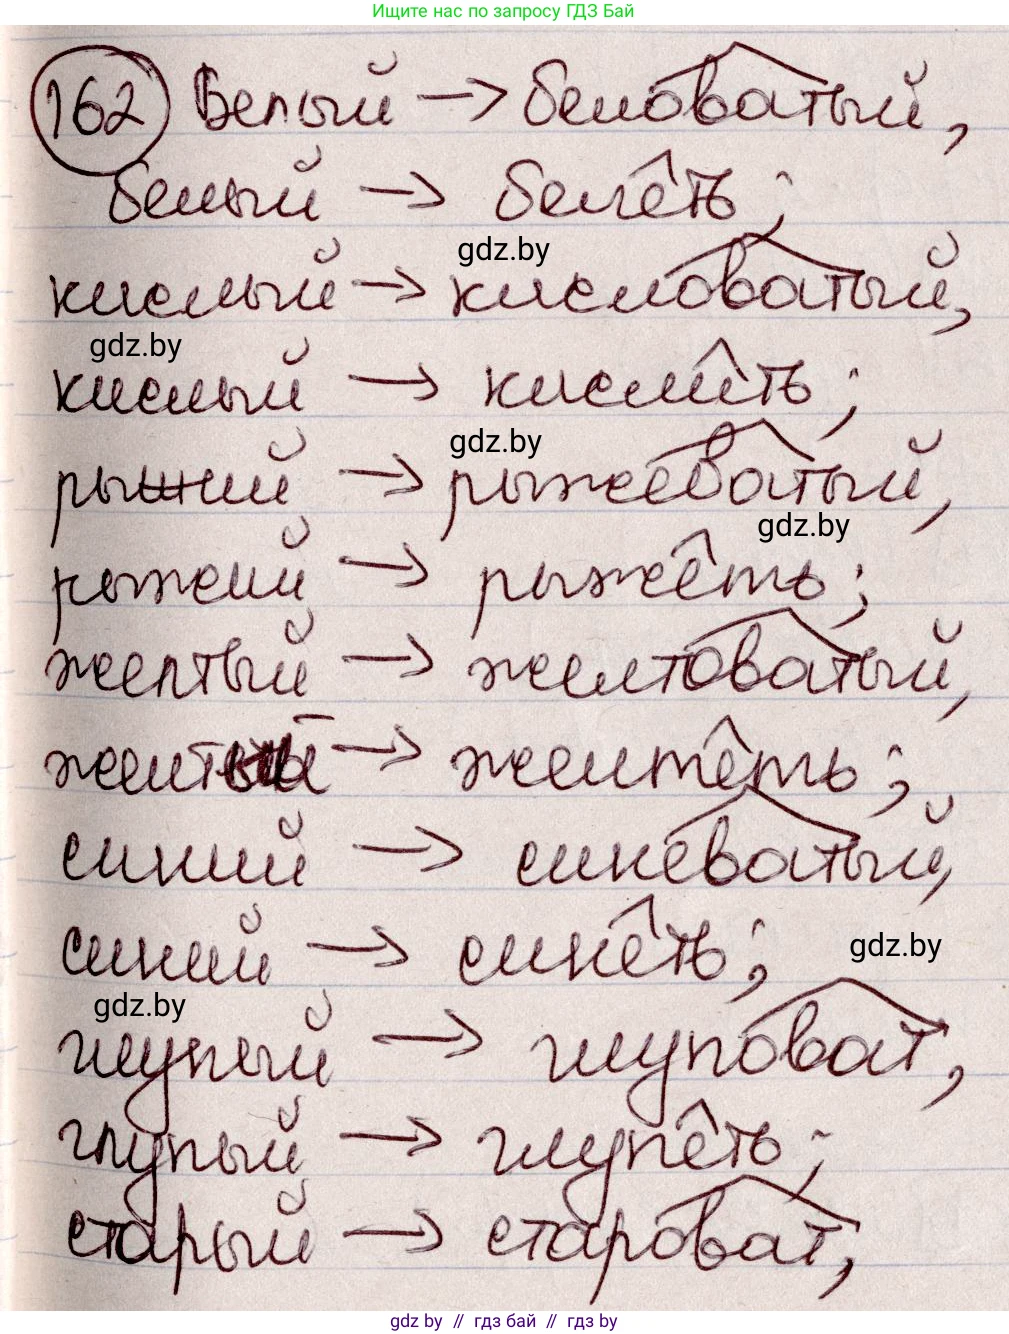 Ищите нас по запросу ГДЗ Бай
162 Белый → беловатый,
белый → белеть;
gdz.by
кислый → кисловатый,
gdz.by
кислый → кислить;
gdz.by
рыжий → рыжеватый,
gdz.by
рыжий → рыжеть;
желтый → желтоватый,
желтый → желтеть;
синий → синеватый,
синий → синеть;
gdz.by
gdz.by
глупый → глуповат,
глупый → глупеть;
старый → староват,
gdz by // гдз бай // гдз by